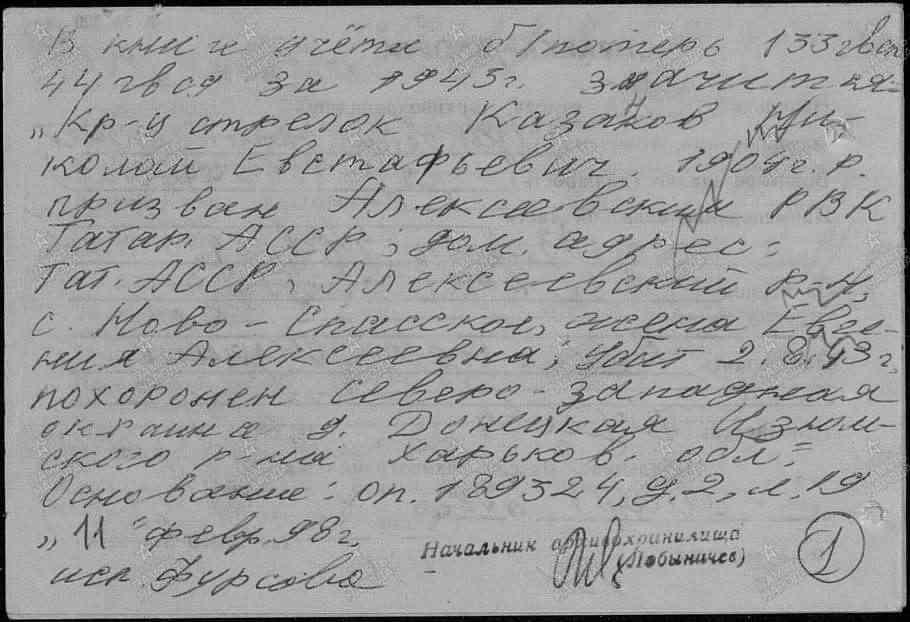 В книге учёта б/потерь 133 гвсп
44 гвсд за 1943г. значится:
„Кр-ц стрелок Казаков Ни-
колай Евстафьевич. 1904г. р.
призван Алексеевским РВК
Татар. АССР; дом. адрес:
Тат. АССР, Алексеевский р-н,
с. Ново-Спасское, жена Евге-
ния Алексеевна; убит 2.8.43г,
похоронен северо-западная
окраина д. Донецкая Изюм-
ского р-на Харьков. обл".
Основание: оп. 189324, д.2, л.19
„11" февр. 98г.
исп Фурсова
Начальник архивохранилища
(Лобыничев)
1